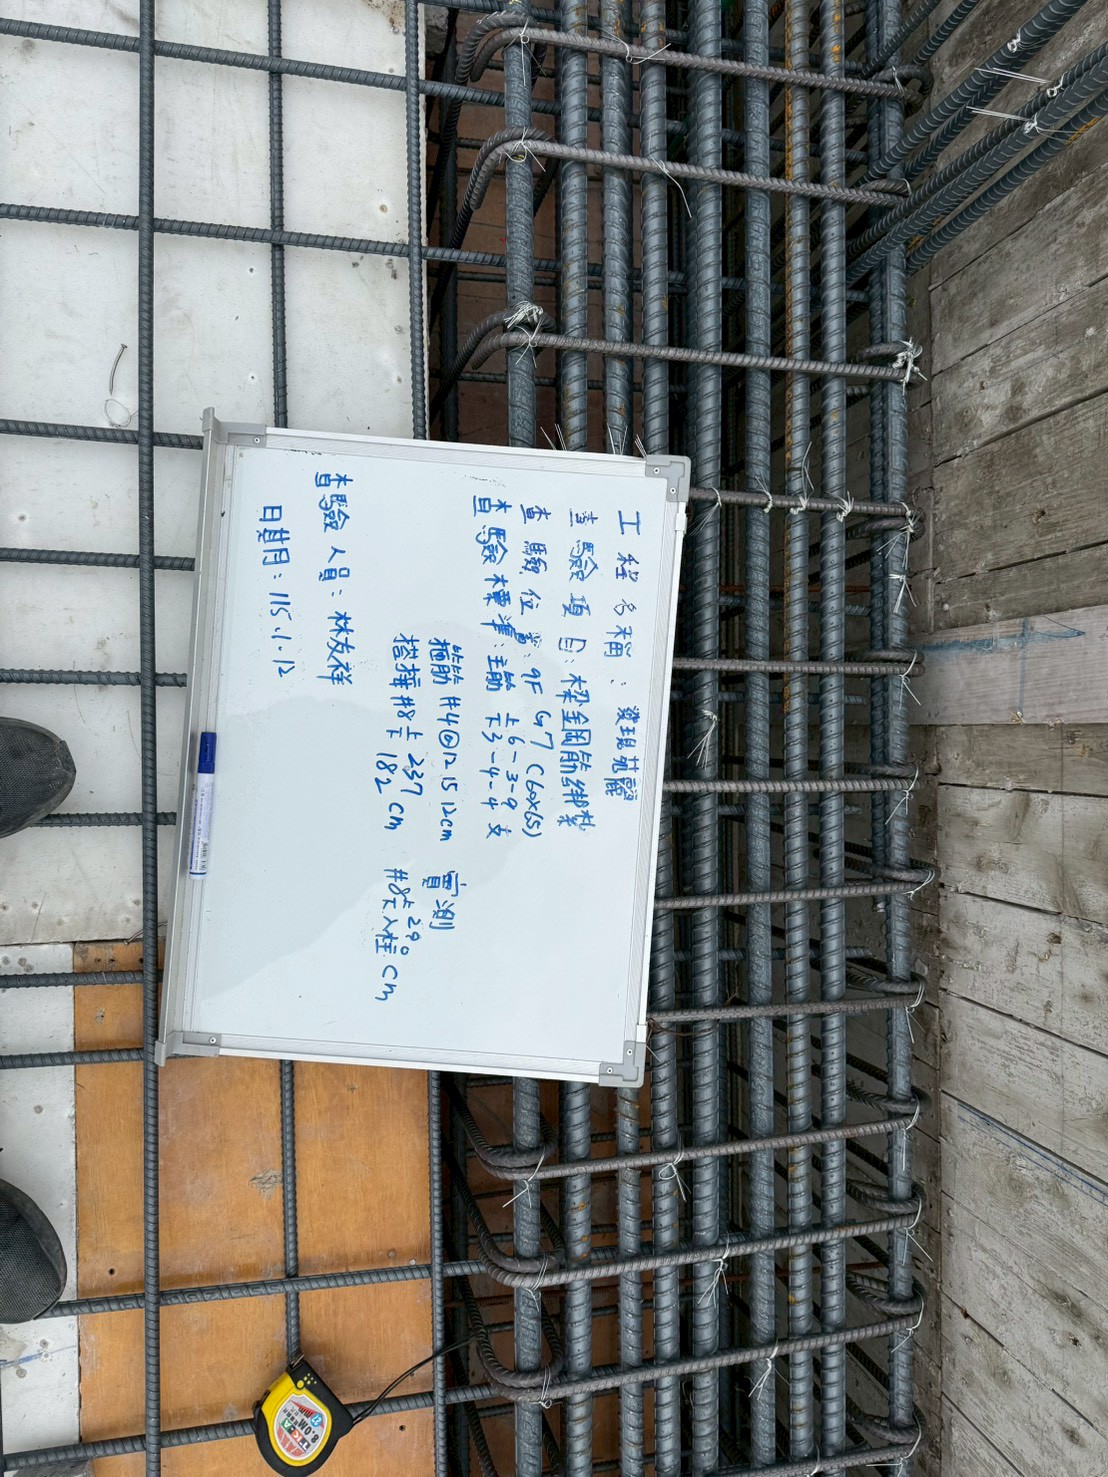 工程名稱：
查驗項目：樑鋼筋綁紮
查驗位置：9F G7 (60x65)
查驗標準：主筋 上6-3-9 下3-4-4 支
箍筋 #4@12 15 12cm 實測
搭接#8 上237 下182 cm #8 上290 下入柱 cm
查驗人員：林友祥
日期：115.1.12
8.0M